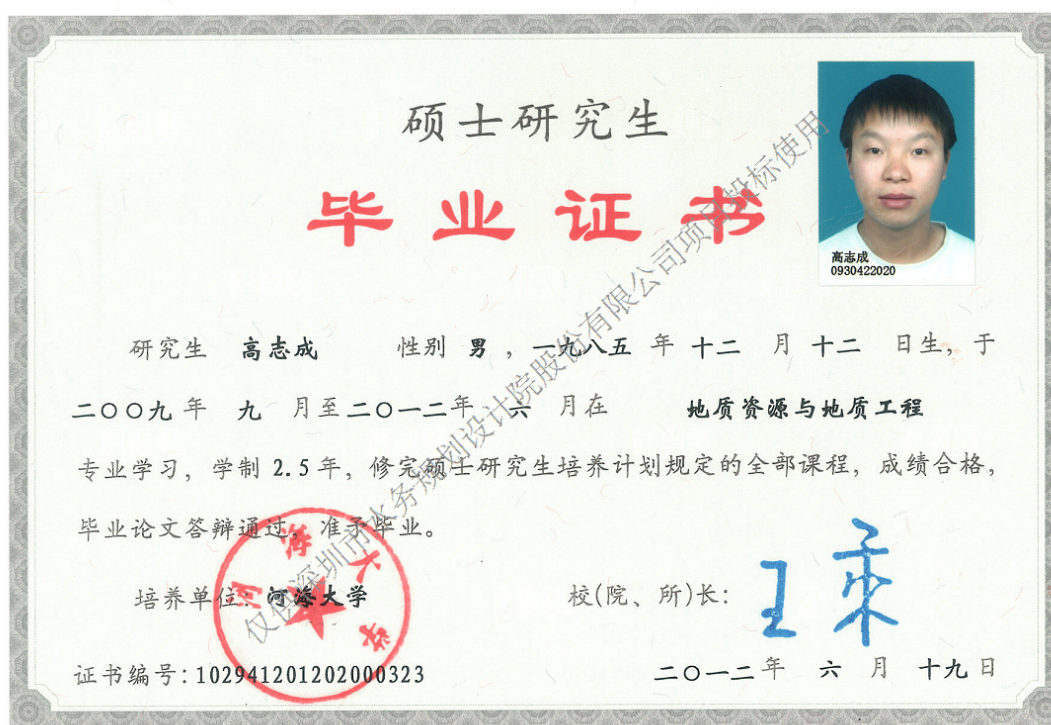 硕士研究生
毕业证书
高志成
0930422020
研究生 高志成 性别 男 ，一九八五 年 十二 月 十二 日生，于
二〇〇九 年 九 月至 二〇一二年 六 月在 地质资源与地质工程
专业学习，学制 2.5 年，修完硕士研究生培养计划规定的全部课程，成绩合格，
毕业论文答辩通过，准予毕业。
培养单位：河海大学
校(院、所)长：
王乘
证书编号：102941201202000323
二〇一二年 六 月 十九日
河海大学
仅供深圳市水务规划设计院股份有限公司项目投标使用